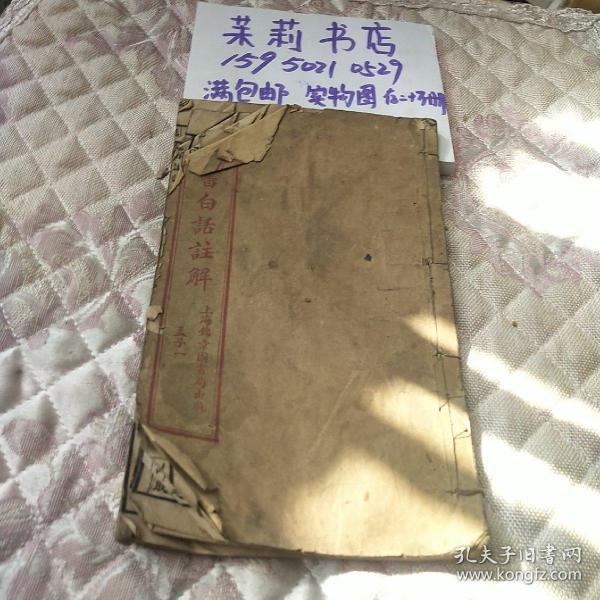 茉莉书店
159 5021 0529
满包邮 实物图
白話註解
上海
孟子一
孔夫子旧书网
www.kongfz.com